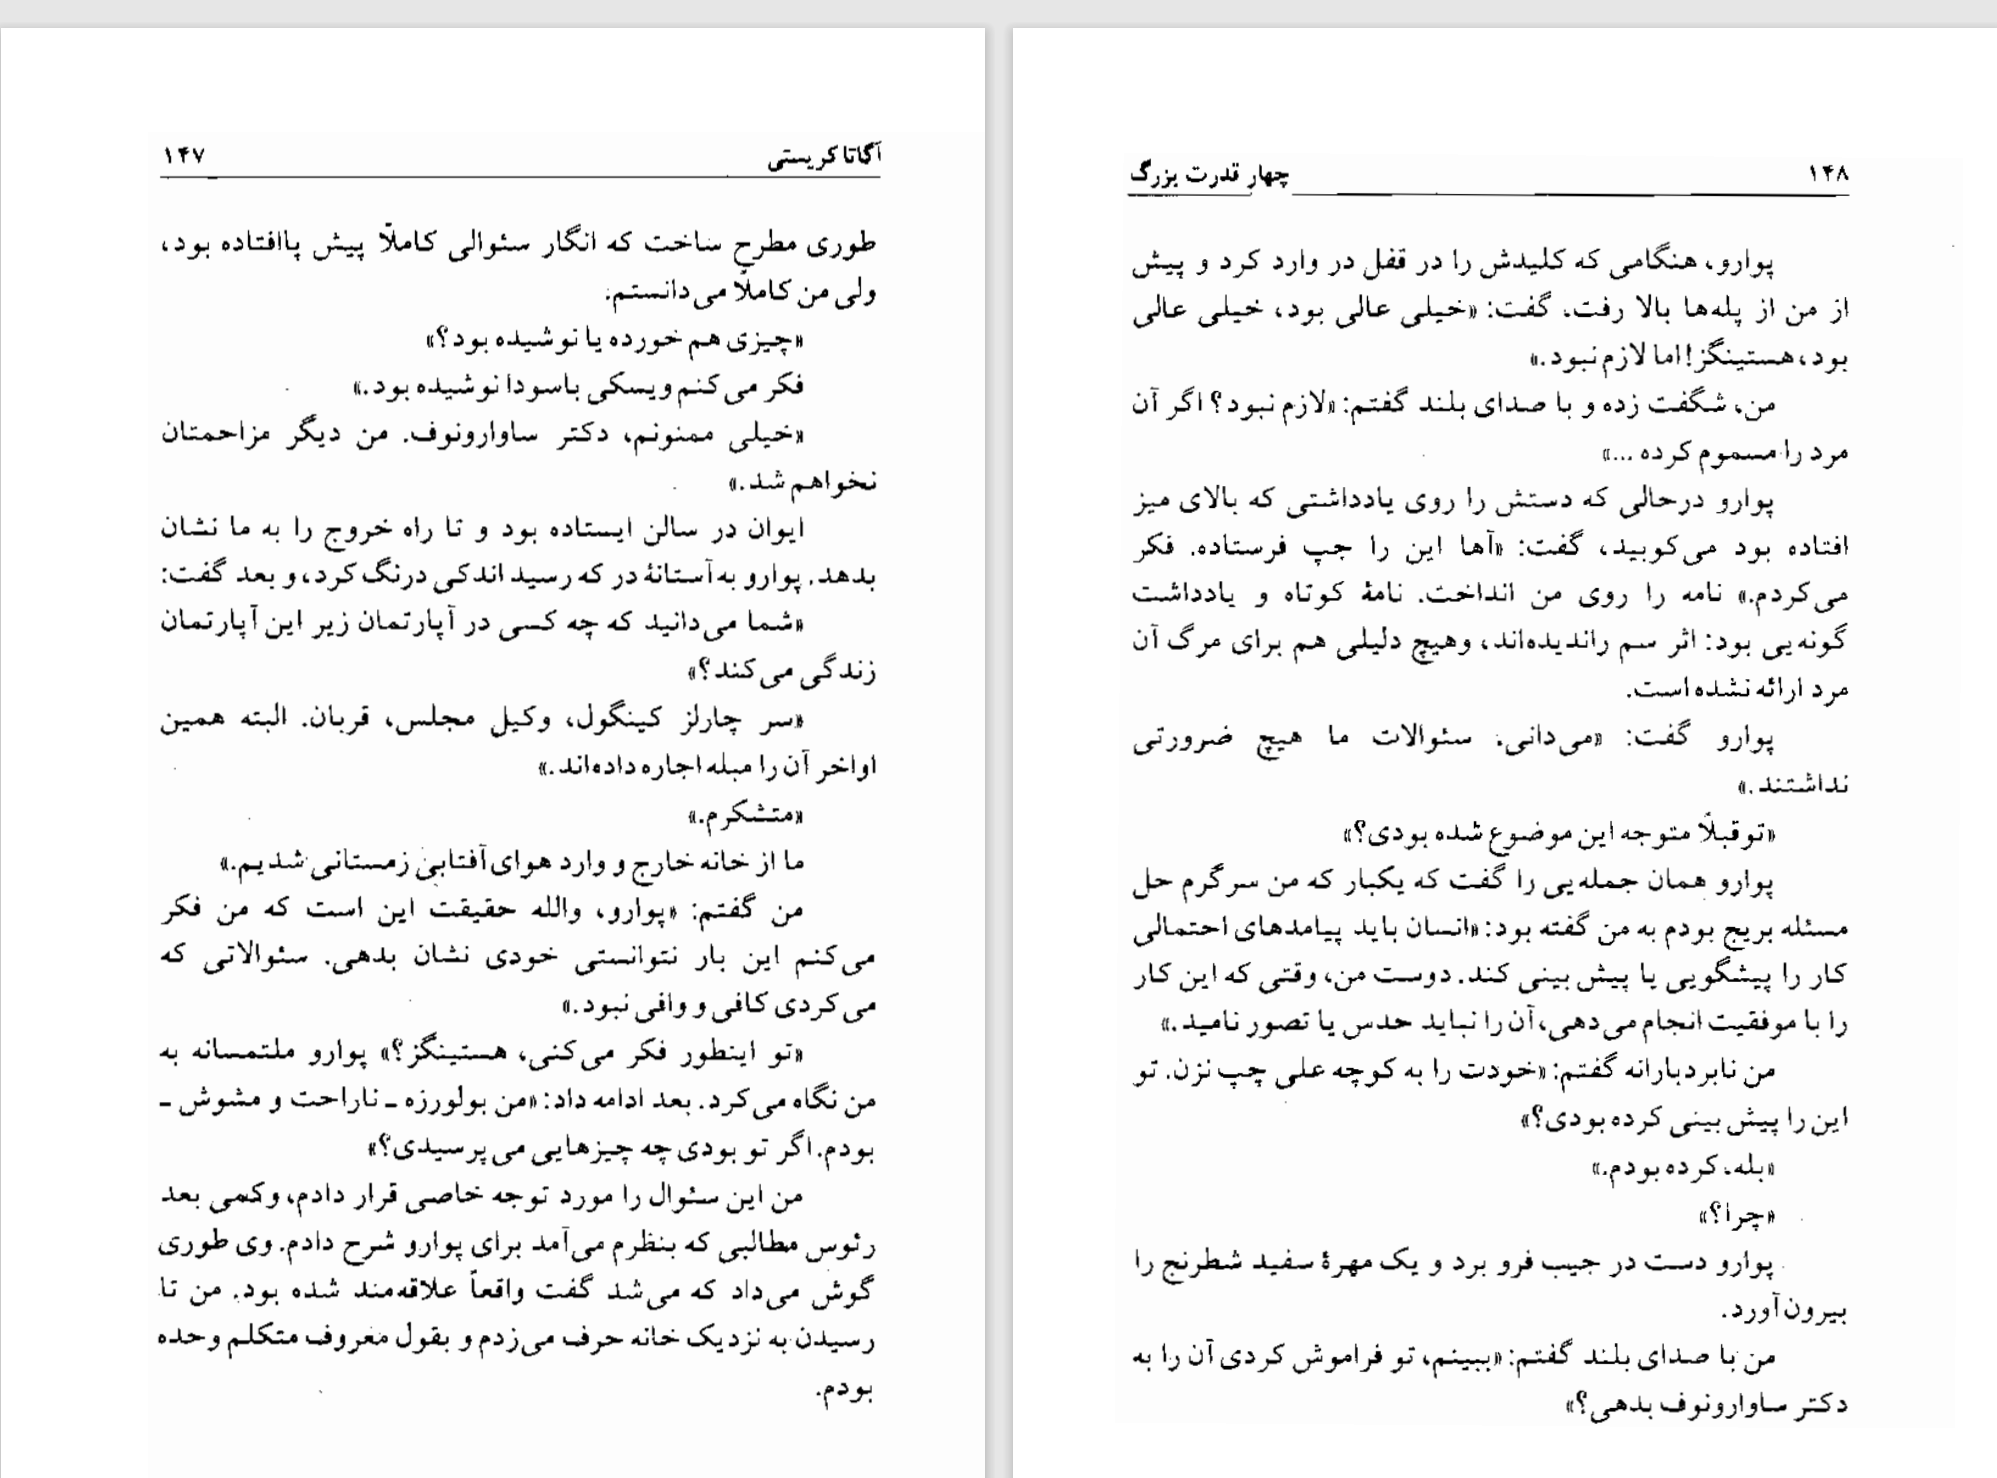 آگاتا کریستی ۱۴۷
طوری مطرح ساخت که انگار سئوالی کاملاً پیش پاافتاده بود،
ولی من کاملاً می‌دانستم:
«چیزی هم خورده یا نوشیده بود؟»
فکر می‌کنم ویسکی باسودا نوشیده بود.»
«خیلی ممنونم، دکتر ساوارونوف. من دیگر مزاحمتان
نخواهم شد.»
ایوان در سالن ایستاده بود و تا راه خروج را به ما نشان
بدهد. پوارو به آستانهٔ در که رسید اندکی درنگ کرد، و بعد گفت:
«شما می‌دانید که چه کسی در آپارتمان زیر این آپارتمان
زندگی می‌کند؟»
«سر چارلز کینگول، وکیل مجلس، قربان. البته همین
اواخر آن را مبله اجاره داده‌اند.»
«متشکرم.»
ما از خانه خارج و وارد هوای آفتابی زمستانی شدیم.»
من گفتم: «پوارو، والله حقیقت این است که من فکر
می‌کنم این بار نتوانستی خودی نشان بدهی. سئوالاتی که
می‌کردی کافی و وافی نبود.»
«تو اینطور فکر می‌کنی، هستینگز؟» پوارو ملتمسانه به
من نگاه می‌کرد. بعد ادامه داد: «من بولورزه ـ ناراحت و مشوش ـ
بودم. اگر تو بودی چه چیزهایی می‌پرسیدی؟»
من این سئوال را مورد توجه خاصی قرار دادم، وکمی بعد
رئوس مطالبی که بنظرم می‌آمد برای پوارو شرح دادم. وی طوری
گوش می‌داد که می‌شد گفت واقعاً علاقه‌مند شده بود. من تا
رسیدن به نزدیک خانه حرف می‌زدم و بقول معروف متکلم وحده
بودم.
۱۴۸ چهار قدرت بزرگ
پوارو، هنگامی که کلیدش را در قفل در وارد کرد و پیش
از من از پله‌ها بالا رفت، گفت: «خیلی عالی بود، خیلی عالی
بود، هستینگز! اما لازم نبود.»
من، شگفت زده و با صدای بلند گفتم: «لازم نبود؟ اگر آن
مرد را مسموم کرده ...»
پوارو درحالی که دستش را روی یادداشتی که بالای میز
افتاده بود می‌کوبید، گفت: «آها این را جپ فرستاده. فکر
می‌کردم.» نامه را روی من انداخت. نامهٔ کوتاه و یادداشت
گونه‌یی بود: اثر سم راندیده‌اند، وهیچ دلیلی هم برای مرگ آن
مرد ارائه نشده است.
پوارو گفت: «می‌دانی. سئوالات ما هیچ ضرورتی
نداشتند.»
«تو قبلاً متوجه این موضوع شده بودی؟»
پوارو همان جمله‌یی را گفت که یکبار که من سرگرم حل
مسئله بریج بودم به من گفته بود: «انسان باید پیامدهای احتمالی
کار را پیشگویی یا پیش بینی کند. دوست من، وقتی که این کار
را با موفقیت انجام می‌دهی، آن را نباید حدس یا تصور نامید.»
من نابردبارانه گفتم: «خودت را به کوچه علی چپ نزن. تو
این را پیش بینی کرده بودی؟»
«بله، کرده بودم.»
«چرا؟»
پوارو دست در جیب فرو برد و یک مهرهٔ سفید شطرنج را
بیرون آورد.
من با صدای بلند گفتم: «ببینم، تو فراموش کردی آن را به
دکتر ساوارونوف بدهی؟»